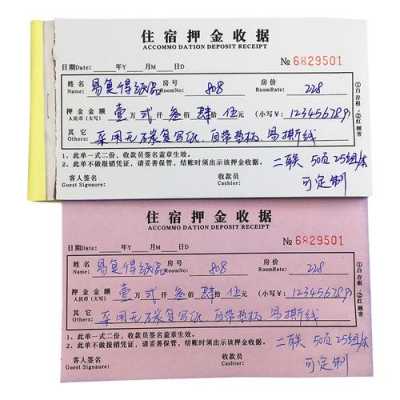 住宿押金收据
ACCOMMO DATION DEPOSIT RECEIPT
日期Date: 年Y 月M 日D
№ 6829501
姓名 Name 易复得纸品 房号 808 房价 RoomRate: 228
押金金额 人民币(大写) 壹万 贰仟 叁佰 肆拾 伍元 (小写¥: 123456789)
其它 Others: 采用无碳复写纸,自带垫板 易撕线
1、此单一式二份,收款员签名盖章生效。
2、此单不做报销凭证,请妥善保管,结账时须出示该押金收据。
二联 50页 25组/本
客人签名 Guest Signature: 收款员 Cashier:
可定制
①白存根 ②红顾客
住宿押金收据
ACCOMMO DATION DEPOSIT RECEIPT
日期Date: 年Y 月M 日D
№ 6829501
姓名 Name 易复得纸品 房号 808 房价 RoomRate: 228
押金金额 人民币(大写) 壹万 贰仟 叁佰 肆拾 伍元 (小写¥: 123456789)
其它 Others: 采用无碳复写纸 自带垫板 易撕线
1、此单一式二份,收款员签名盖章生效。
2、此单不做报销凭证,请妥善保管,结账时须出示该押金收据。
二联 50页 25组/本
客人签名 Guest Signature: 收款员 Cashier:
可定制
①白存根 ②红顾客